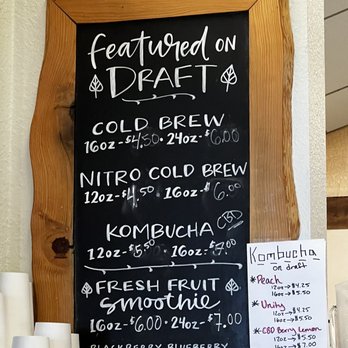 featured ON
DRAFT
COLD BREW
16oz-$4.50 • 24oz-$6.00
NITRO COLD BREW
12oz-$4.50 • 16oz-$6.00
KOMBUCHA CBD
12oz-$5.50 • 16oz-$7.00
FRESH FRUIT
smoothie
16oz-$6.00 • 24oz-$7.00
BLACKBERRY BLUEBERRY
Kombucha
on draft
*Peach
12oz → $4.25
16oz → $5.50
*Unity
12oz → $4.25
16oz → $5.50
*CBD Berry Lemon
12oz → $5.50
16oz → $7.00